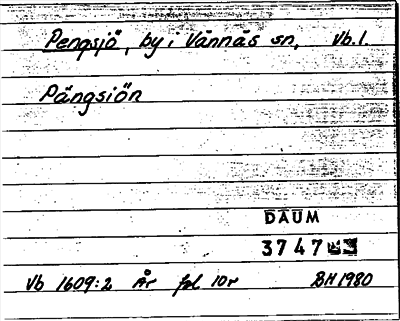 Pengsjö, by i Vännäs sn, Vb.l.
Pängsiön
DAUM
3747
Vb 1609:2 År fol. 10r BH 1980